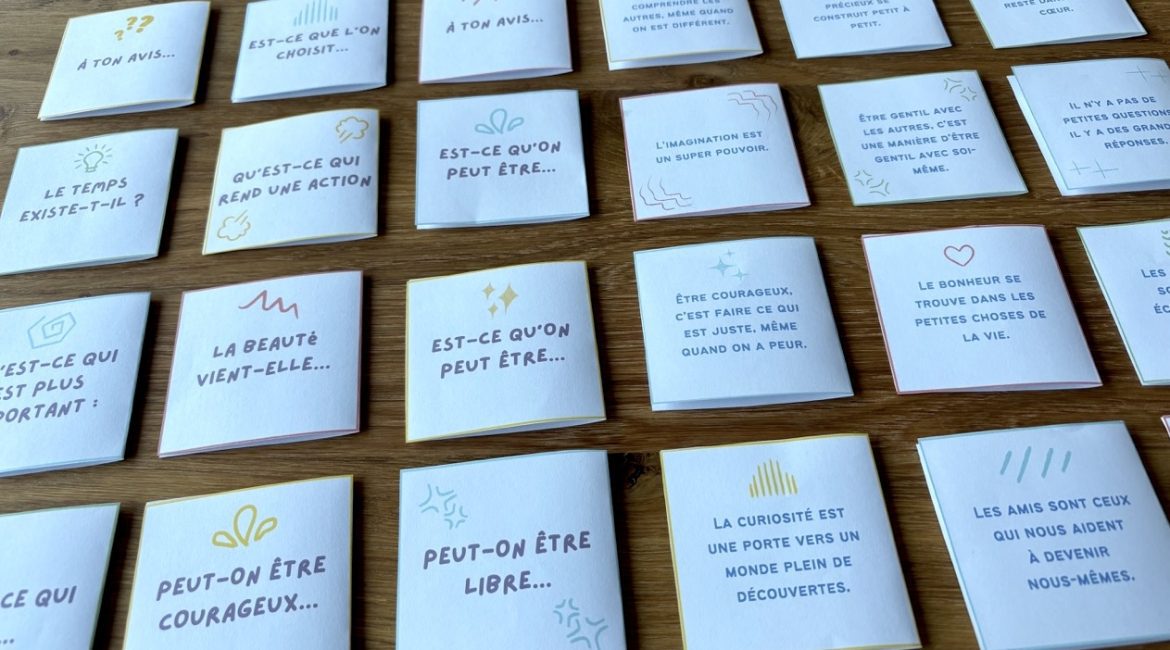 À TON AVIS...
EST-CE QUE L'ON
CHOISIT...
À TON AVIS...
COMPRENDRE LES
AUTRES, MÊME QUAND
ON EST DIFFÉRENT.
PRÉCIEUX SE
CONSTRUIT PETIT À
PETIT.
RESTE
CŒUR.
LE TEMPS
EXISTE-T-IL ?
QU'EST-CE QUI
REND UNE ACTION
EST-CE QU'ON
PEUT ÊTRE...
L'IMAGINATION EST
UN SUPER POUVOIR.
ÊTRE GENTIL AVEC
LES AUTRES, C'EST
UNE MANIÈRE D'ÊTRE
GENTIL AVEC SOI-
MÊME.
IL N'Y A PAS DE
PETITES QUESTIONS
IL Y A DES
RÉPONSES.
EST-CE QUI
EST PLUS
LA BEAUTé
VIENT-ELLE...
EST-CE QU'ON
PEUT ÊTRE...
ÊTRE COURAGEUX,
C'EST FAIRE CE QUI
EST JUSTE, MÊME
QUAND ON A PEUR.
LE BONHEUR SE
TROUVE DANS LES
PETITES CHOSES DE
LA VIE.
LES
CE QUI
...
PEUT-ON ÊTRE
COURAGEUX...
PEUT-ON ÊTRE
LIBRE...
LA CURIOSITÉ EST
UNE PORTE VERS UN
MONDE PLEIN DE
DÉCOUVERTES.
LES AMIS SONT CEUX
QUI NOUS AIDENT
À DEVENIR
NOUS-MÊMES.